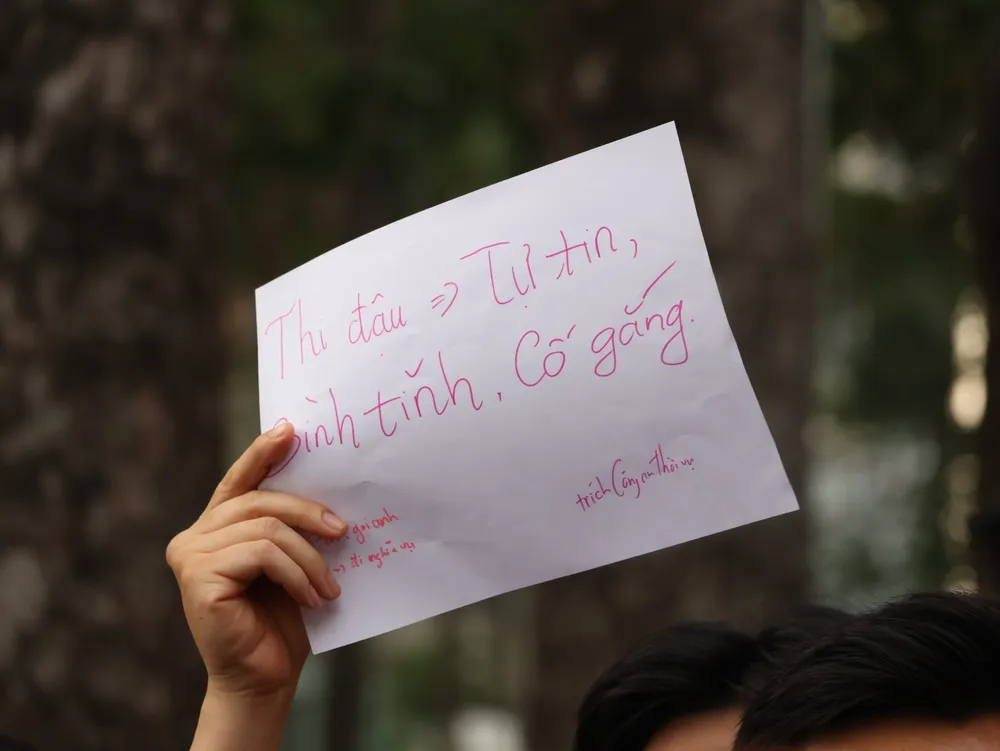 Thi đậu => Tự tin,
Bình tĩnh, Cố gắng.
trích Công an Thời vụ
gọi anh
=> đi nghĩa vụ